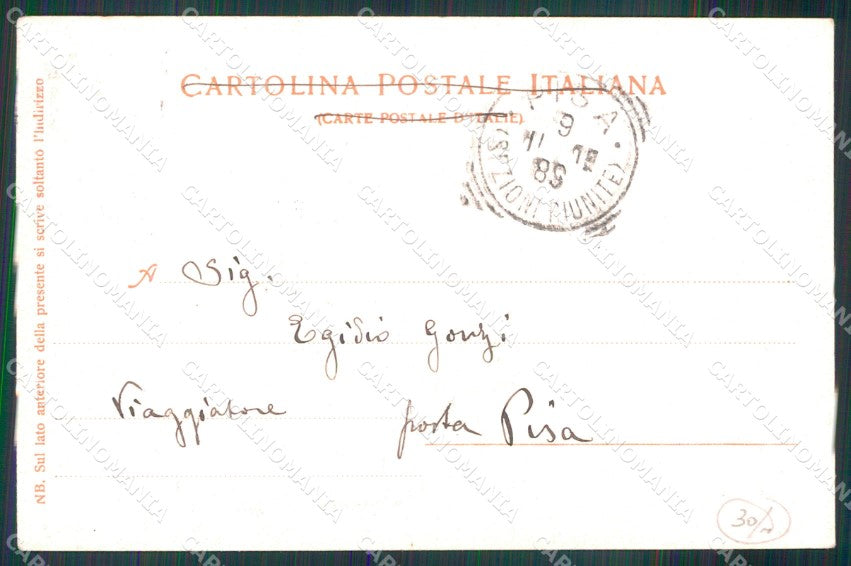 CARTOLINA POSTALE ITALIANA
(CARTE POSTALE D'ITALIE)
PISA
9
(SEZIONI RIUNITE)
NB. Sul lato anteriore della presente si scrive soltanto l'Indirizzo
A Sig.
Egidio Gonzi
Viaggiatore posta Pisa
30/
CARTOLINOMANIA